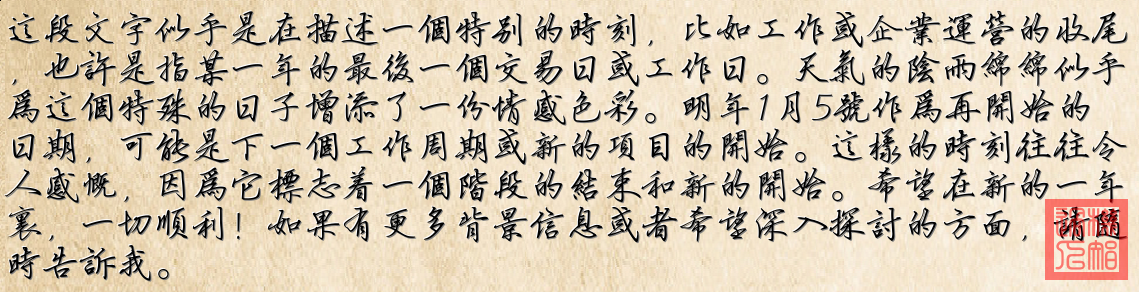 這段文字似乎是在描述一個特别的時刻，比如工作或企業運營的收尾
，也許是指某一年的最後一個交易日或工作日。天氣的陰雨綿綿似乎
爲這個特殊的日子增添了一份情感色彩。明年1月5號作爲再開始的
日期，可能是下一個工作周期或新的項目的開始。這樣的時刻往往令
人感慨，因爲它標志着一個階段的結束和新的開始。希望在新的一年
裏，一切順利！如果有更多背景信息或者希望深入探討的方面，請隨
時告訴我。